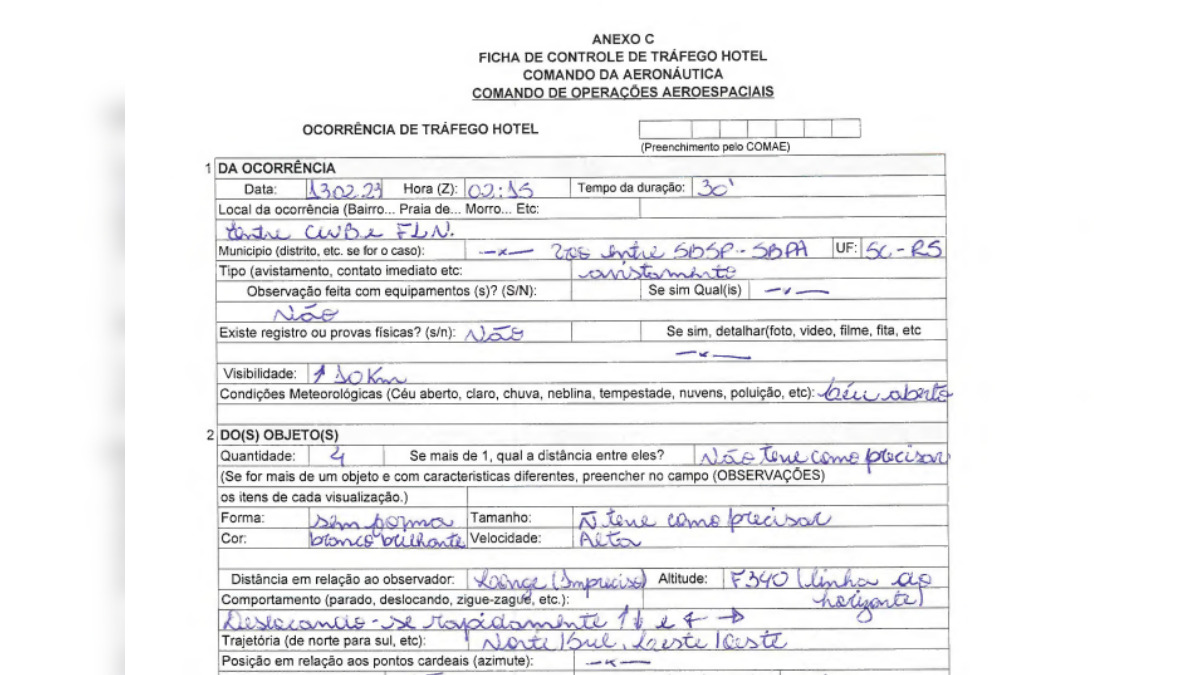 ANEXO C
FICHA DE CONTROLE DE TRÁFEGO HOTEL
COMANDO DA AERONÁUTICA
COMANDO DE OPERAÇÕES AEROESPACIAIS
OCORRÊNCIA DE TRÁFEGO HOTEL
(Preenchimento pelo COMAE)
1 DA OCORRÊNCIA
Data: 13.02.23 Hora (Z): 02:15 Tempo da duração: 30'
Local da ocorrência (Bairro... Praia de... Morro... Etc:
Entre CWB e FLN.
Municipio (distrito, etc. se for o caso): entre SBSP - SBPA UF: SC - RS
Tipo (avistamento, contato imediato etc: avistamento
Observação feita com equipamentos (s)? (S/N): Se sim Qual(is)
Não
Existe registro ou provas físicas? (s/n): Não Se sim, detalhar(foto, video, filme, fita, etc
Visibilidade: ↑ 10 Km
Condições Meteorológicas (Céu aberto, claro, chuva, neblina, tempestade, nuvens, poluição, etc): Céu aberto
2 DO(S) OBJETO(S)
Quantidade: 4 Se mais de 1, qual a distância entre eles? Não teve como precisar
(Se for mais de um objeto e com caracteristicas diferentes, preencher no campo (OBSERVAÇÕES)
os itens de cada visualização.)
Forma: sem forma Tamanho: Ñ teve como precisar
Cor: branco brilhante Velocidade: Alta
Distância em relação ao observador: Longe (Impreciso) Altitude: F340 (linha do
Comportamento (parado, deslocando, zigue-zague, etc.): horizonte)
Deslocando-se rapidamente ↑↓ e ← →
Trajetória (de norte para sul, etc): Norte/Sul, Leste/Oeste
Posição em relação aos pontos cardeais (azimute):